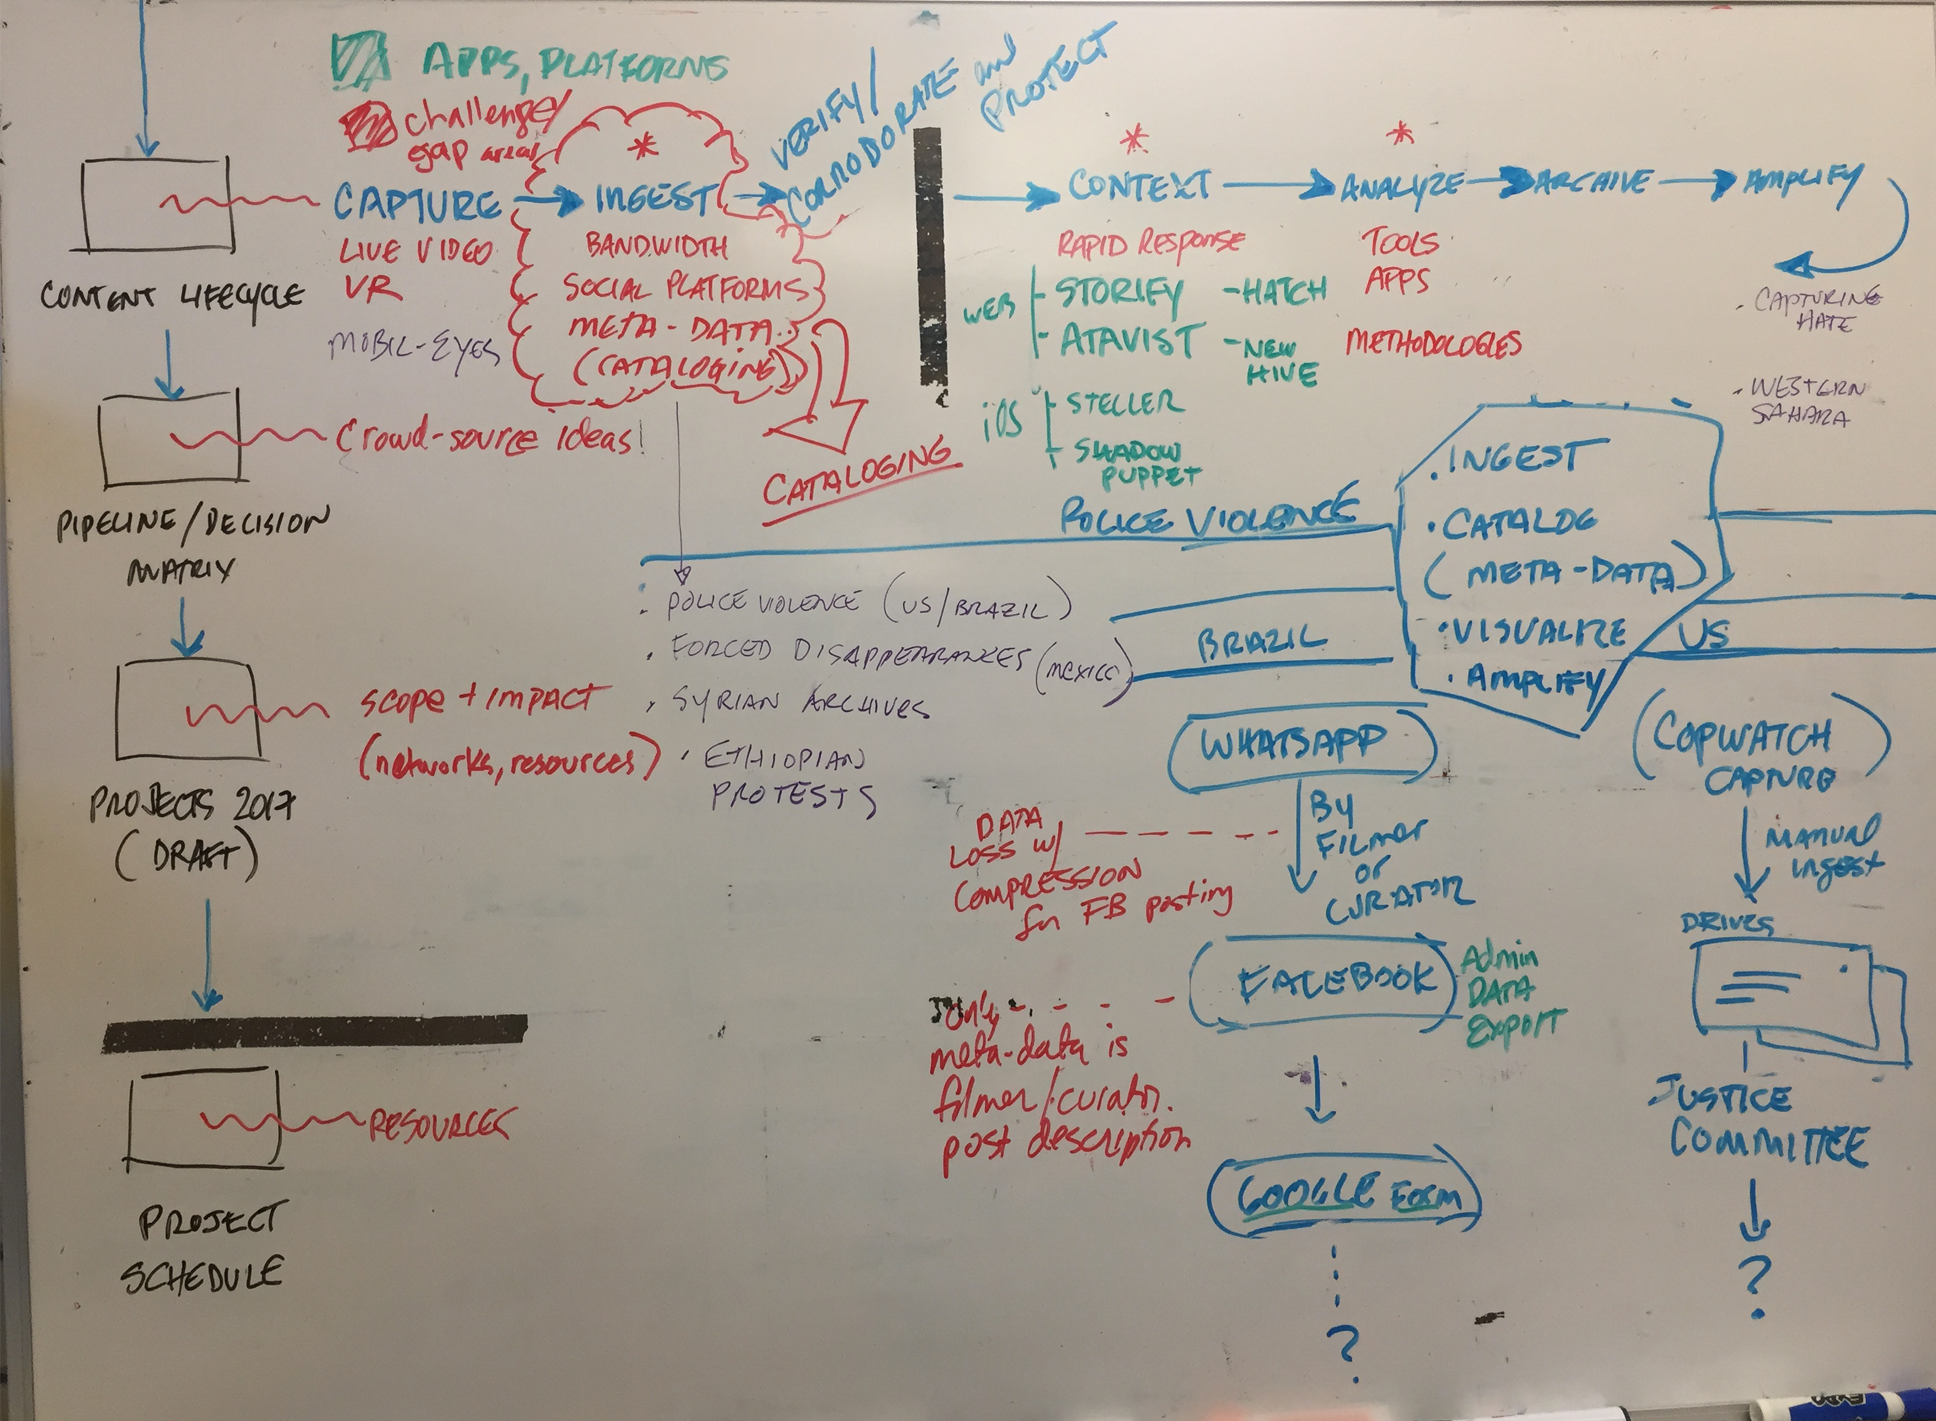 APPS, PLATFORMS
challenge/
gap areas
VERIFY/
CORRODORATE and
PROTECT
*
*
*
CAPTURE
INGEST
CONTEXT
ANALYZE
ARCHIVE
AMPLIFY
LIVE VIDEO
VR
MOBIL-EYES
BANDWIDTH
SOCIAL PLATFORMS
META-DATA
(CATALOGING)
CATALOGING
RAPID RESPONSE
WEB
STORIFY
-HATCH
ATAVIST
-NEW
HIVE
iOS
STELLER
SHADOW
PUPPET
TOOLS
APPS
METHODOLOGIES
. CAPTURING
HATE
. WESTERN
SAHARA
CONTENT LIFECYCLE
Crowd-source ideas!
PIPELINE/DECISION
MATRIX
scope + impact
(networks, resources)
PROJECTS 2017
(DRAFT)
RESOURCES
PROJECT
SCHEDULE
. POLICE VIOLENCE (US/BRAZIL)
. FORCED DISAPPEARANCES (MEXICO)
. SYRIAN ARCHIVES
. ETHIOPIAN
PROTESTS
POLICE VIOLENCE
. INGEST
. CATALOG
(META-DATA)
. VISUALIZE
. AMPLIFY
BRAZIL
US
WHATSAPP
BY
FILMER
or
CURATOR
DATA
LOSS w/
COMPRESSION
for FB posting
FACEBOOK
Admin
DATA
EXPORT
only
meta-data is
filmer/curator.
post description
GOOGLE FORM
?
(COPWATCH)
CAPTURE
MANUAL
ingest
DRIVES
JUSTICE
COMMITTEE
?
EXPO